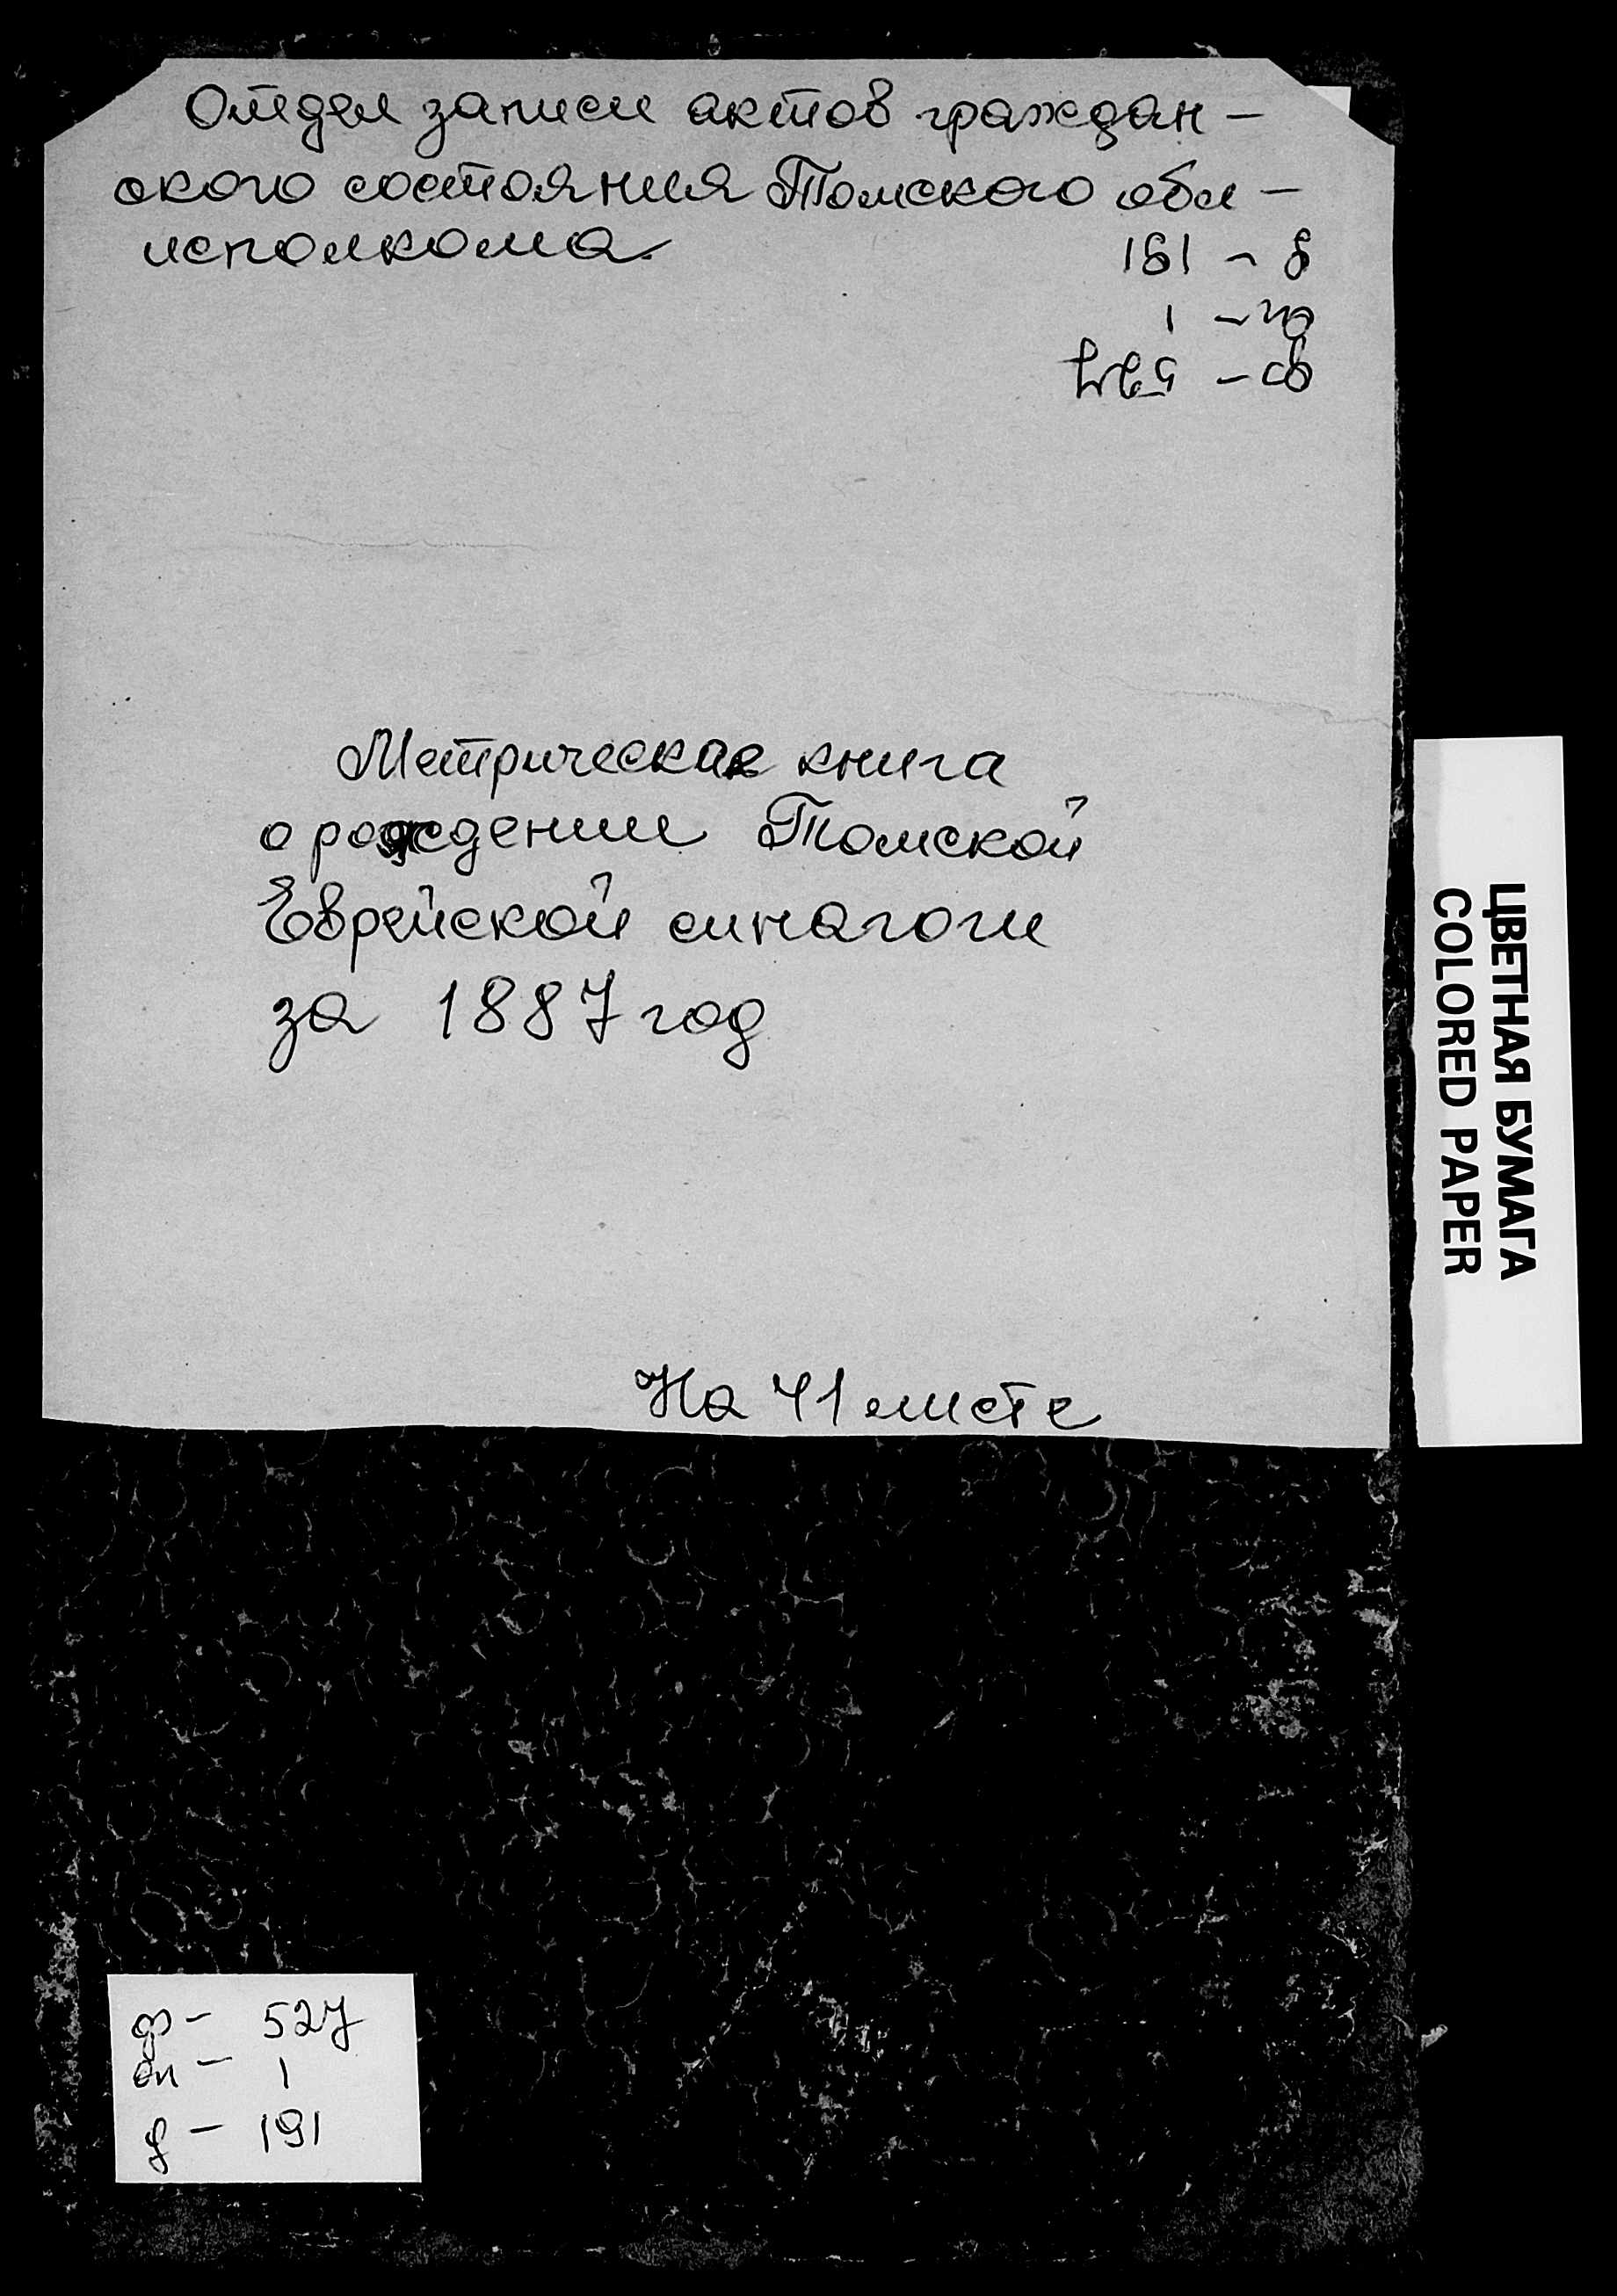 Отдел записи актов граждан-
ского состояния Томского обл-
исполкома.
ф- 527
оп- 1
д - 191
Метрическая книга
о рождении Томской
Еврейской синагоги
за 1887 год
На 41 листе
ЦВЕТНАЯ БУМАГА
COLORED PAPER
ф- 527
оп - 1
д - 191